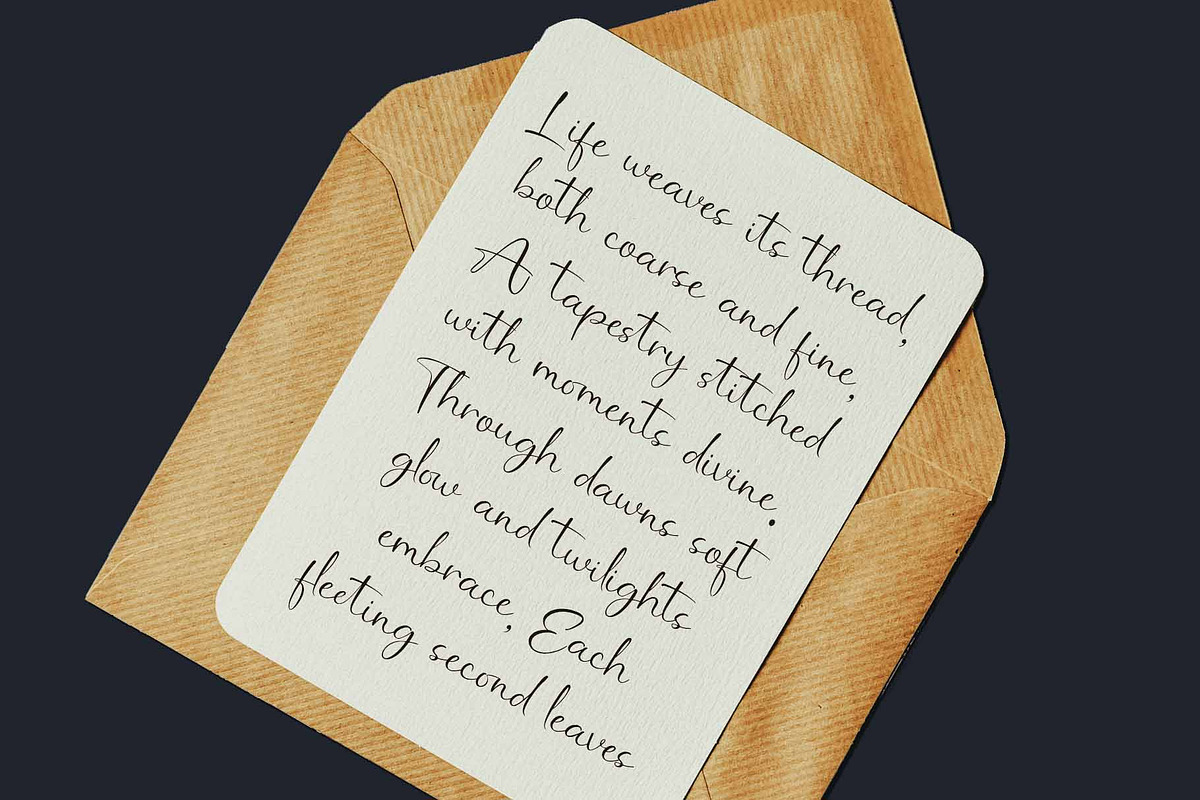 Life weaves its thread,
both coarse and fine,
A tapestry stitched
with moments divine.
Through dawns soft
glow and twilights
embrace, Each
fleeting second leaves